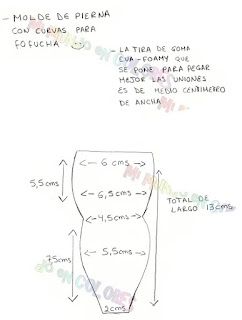 - MOLDE DE PIERNA
CON CURVAS PARA
FOFUCHA
- LA TIRA DE GOMA
EVA-FOAMY QUE
SE PONE PARA PEGAR
MEJOR LAS UNIONES
ES DE MEDIO CENTIMETRO
DE ANCHA
6 cms
5,5cms
6,5cms
TOTAL DE
LARGO 13cms
4,5cms
7,5cms
5,5cms
2cms